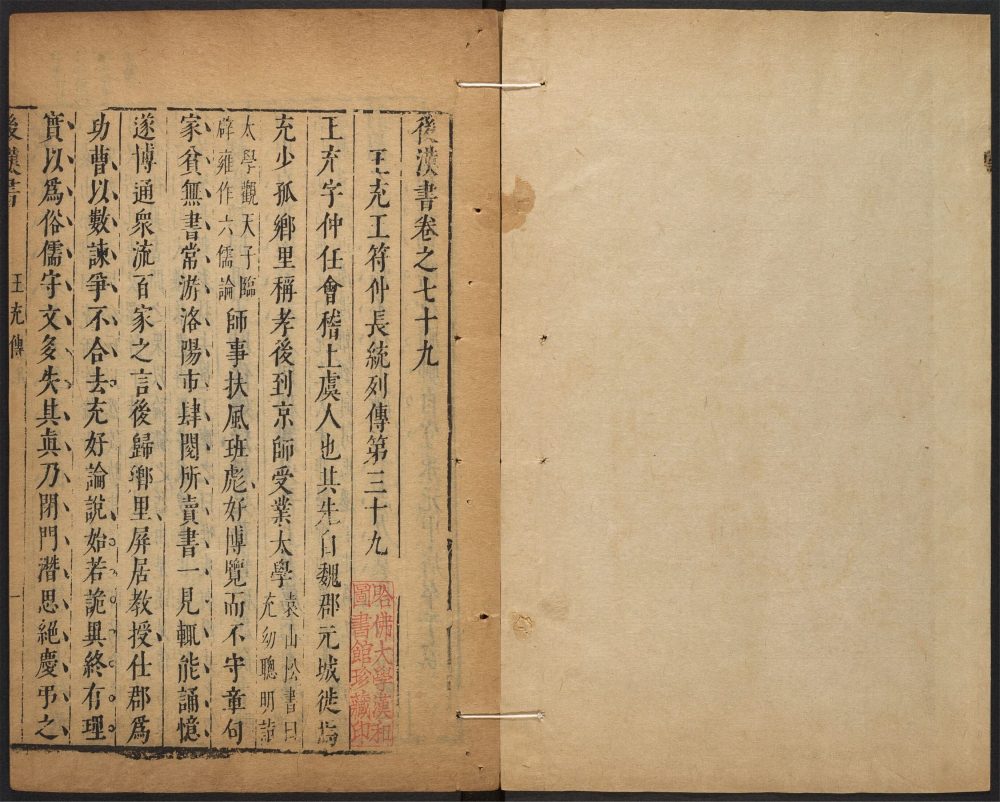 後漢書卷之七十九
王充王符仲長統列傳第三十九
王充字仲任會稽上虞人也其先自魏郡元城徙焉
充少孤鄉里稱孝後到京師受業太學袁山松書曰充幼聰明詣
太學觀天子臨辟雍作六儒論師事扶風班彪好博覽而不守章句
家貧無書常游洛陽市肆閱所賣書一見輒能誦憶
遂博通眾流百家之言後歸鄉里屏居教授仕郡為
功曹以數諫爭不合去充好論說始若詭異終有理
實以為俗儒守文多失其真乃閉門潛思絕慶弔之
後漢書
王充傳
一
哈佛大學漢和
圖書館珍藏印